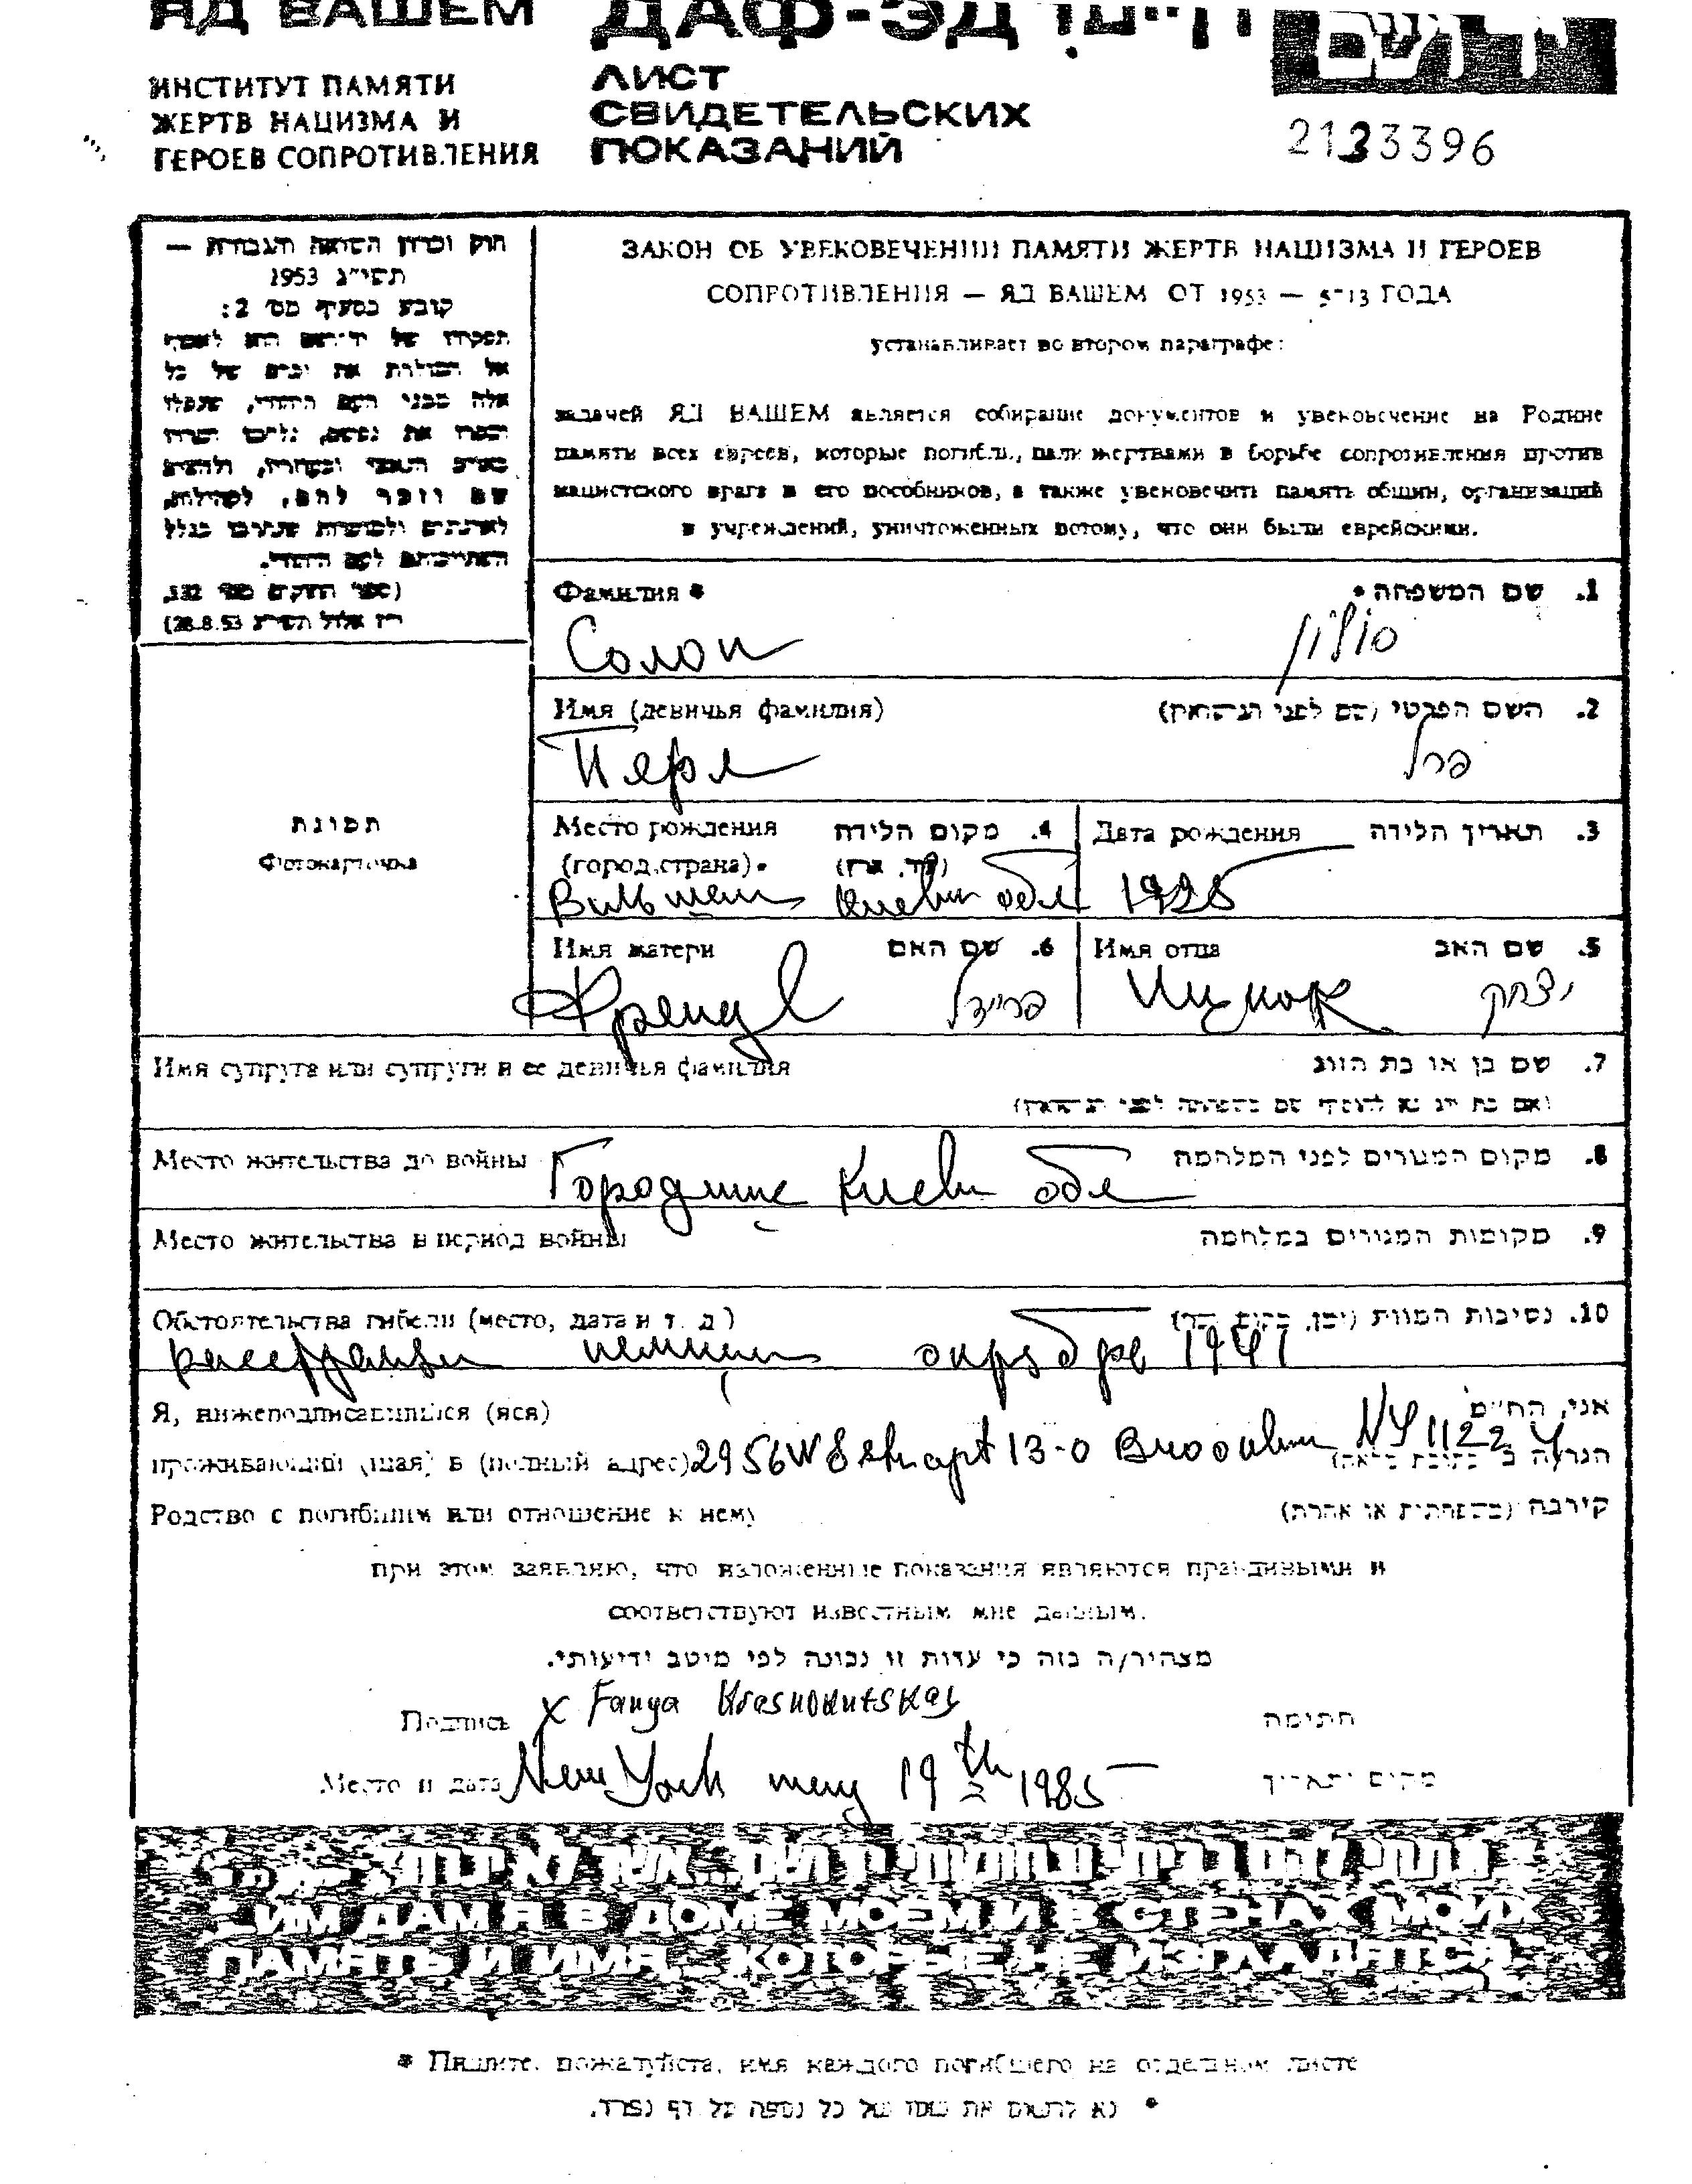 ЯД ВАШЕМ
ДАФ-ЭД
ИНСТИТУТ ПАМЯТИ
ЖЕРТВ НАЦИЗМА И
ГЕРОЕВ СОПРОТИВЛЕНИЯ
ЛИСТ
СВИДЕТЕЛЬСКИХ
ПОКАЗАНИЙ
2133396
חוק זכרון השואה והגבורה —
תשי"ג 1953
קובע בסעיף מס' 2:
תפקידו של יד־ושם הוא לאסוף
אל המולדת את זכרם של כל
אלה מבני העם היהודי, שנפלו
ומסרו את נפשם, נלחמו ומרדו
באויב הנאצי ובעוזריו, ולהציב
שם וזכר להם, לקהילות,
לארגונים ולמוסדות שנחרבו בגלל
השתייכותם לעם היהודי.
(ספר החוקים מס' 132,
י"ז אלול תשי"ג 28.8.53)
ЗАКОН ОБ УВЕКОВЕЧЕНИИ ПАМЯТИ ЖЕРТВ НАЦИЗМА И ГЕРОЕВ
СОПРОТИВЛЕНИЯ — ЯД ВАШЕМ ОТ 1953 — 5713 ГОДА
устанавливает во втором параграфе:
задачей ЯД ВАШЕМ является собирание документов и увековечение на Родине
памяти всех евреев, которые погибли, пали жертвами в борьбе сопротивления против
нацистского врага и его пособников, а также увековечить память общин, организаций
и учреждений, уничтоженных потому, что они были еврейскими.
Фамилия * שם המשפחה * .1
Солон סולון
Имя (девичья фамилия) השם הפרטי (שם לפני הנישואין) .2
Перл פרל
תמונה
Фотокарточка
Место рождения מקום הלידה .4 Дата рождения תאריך הלידה .3
(город, страна) * (עיר, ארץ)
Киевск обл 1925
Имя матери שם האם .6 Имя отца שם האב .5
Фрейдл פריידל Ицхок יצחק
Имя супруга или супруги и ее девичья фамилия שם בן או בת הזוג .7
(אם בת זוג נא להוסיף שם משפחה לפני הנישואין)
Место жительства до войны מקום המגורים לפני המלחמה .8
Городище Киевск обл
Место жительства в период войны מקומות המגורים במלחמה .9
Обстоятельства гибели (место, дата и т. д.) נסיבות המוות (זמן, מקום וכו') .10
немцами октябре 1941
Я, нижеподписавшийся (аяся) אני, הח"מ
проживающий (щая) в (полный адрес) 2956 W 8 str apt 13-0 NY 11224 הגר/ה ב (כתובת מלאה)
Родство с погибшим или отношение к нему קירבה (משפחתית או אחרת)
при этом заявляю, что изложенные показания являются правдивыми и
соответствуют известным мне данным.
מצהיר/ה בזה כי עדות זו נכונה לפי מיטב ידיעותי.
Подпись x Fanya Krasnokutskay חתימה
Место и дата New York may 19th 1985 מקום ותאריך
ИМ ДАМ Я В ДОМЕ МОЕМ И В СТЕНАХ МОИХ
ПАМЯТЬ И ИМЯ, КОТОРЫЕ НЕ ИЗГЛАДЯТСЯ
* Пишите, пожалуйста, имя каждого погибшего на отдельном листе
* נא לרשום את שמו של כל נספה על דף נפרד.